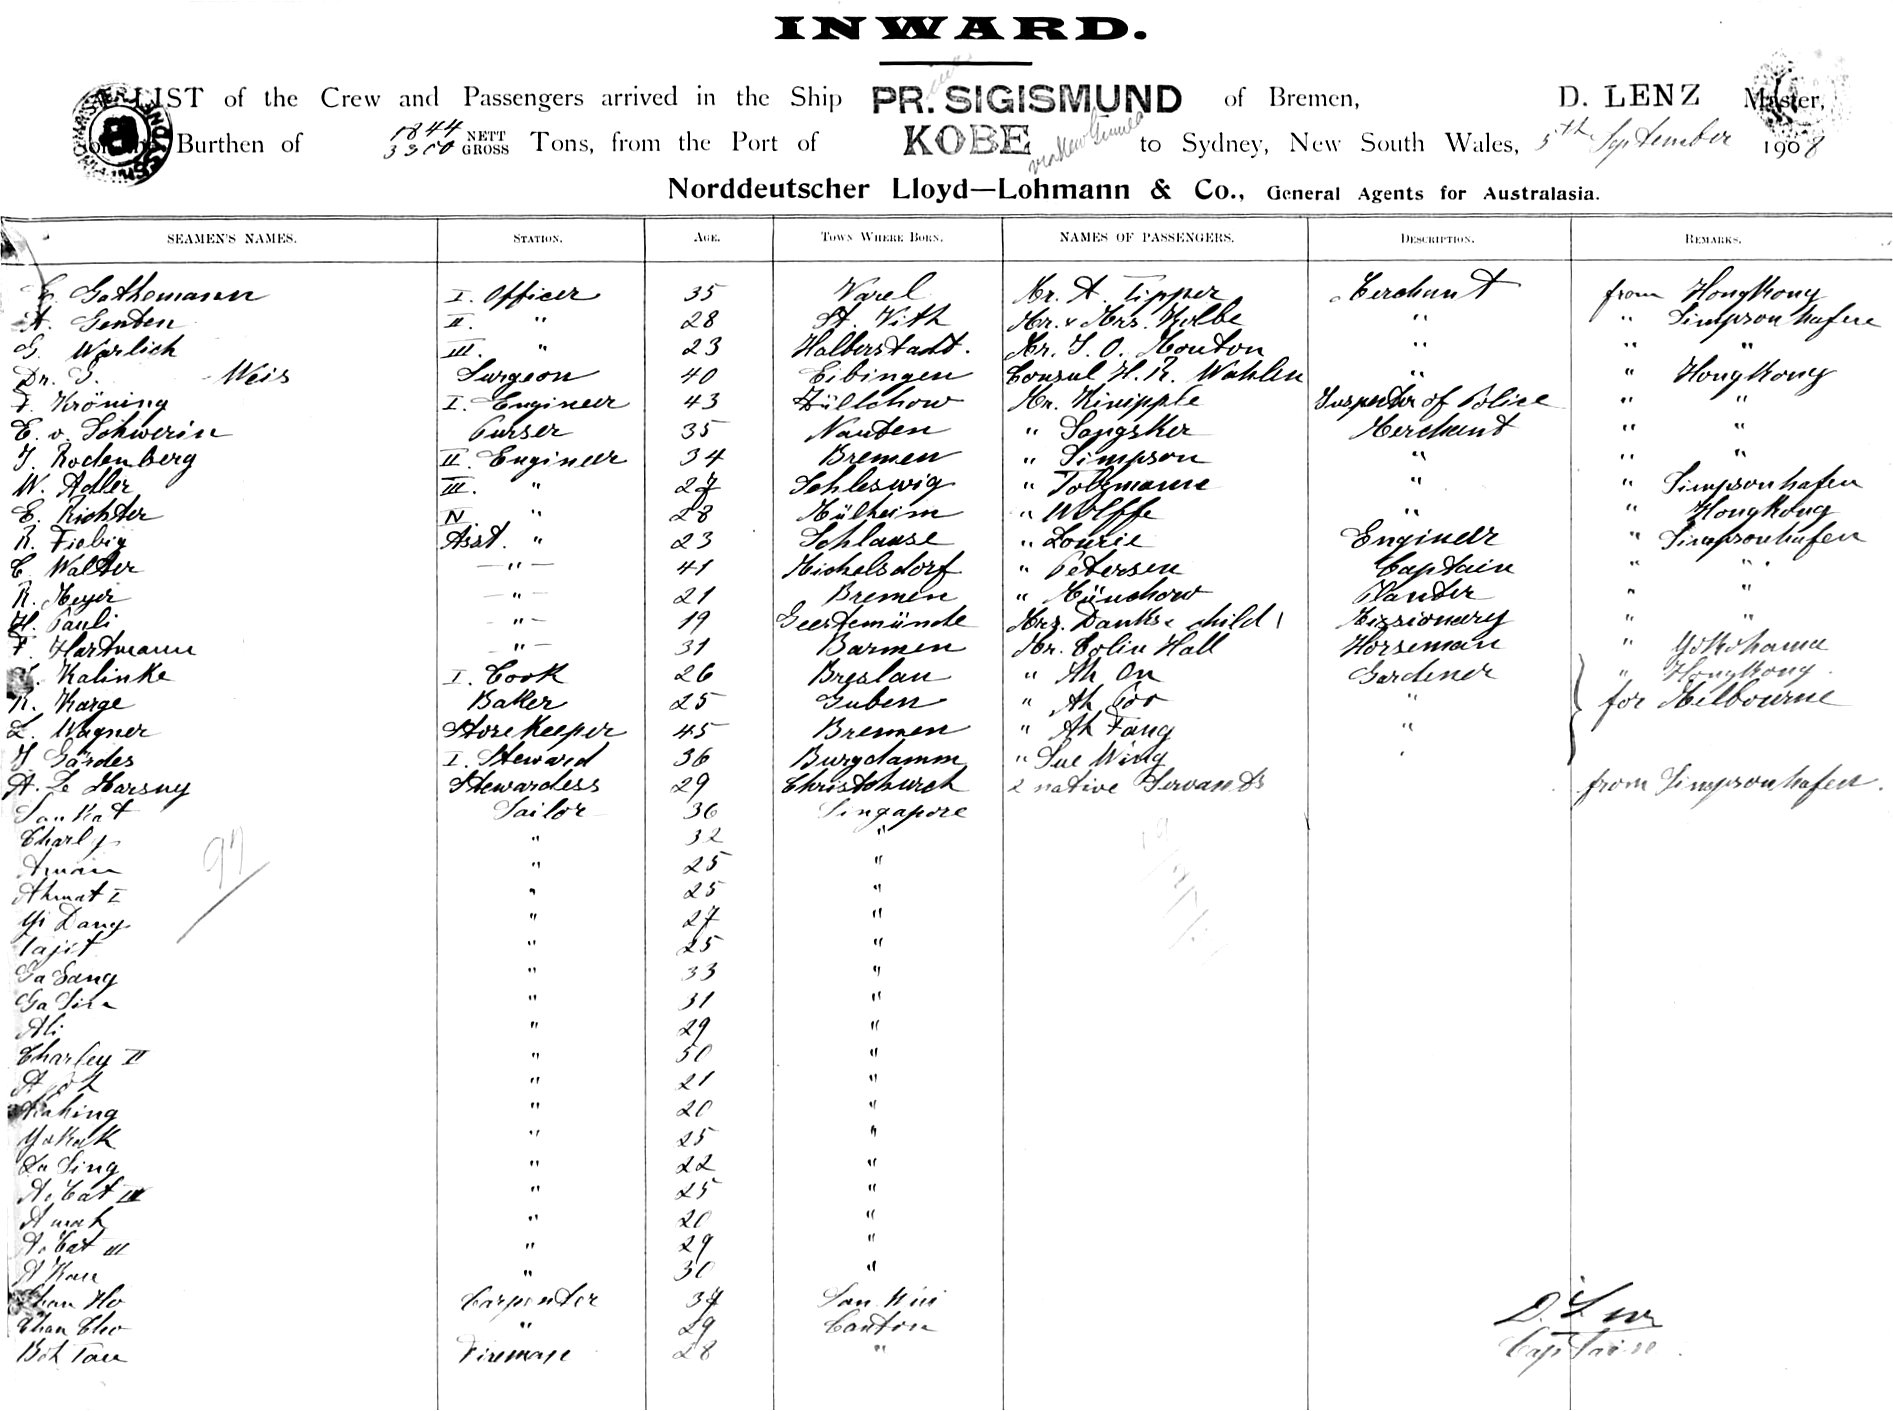 INWARD.
LIST of the Crew and Passengers arrived in the Ship PR. SIGISMUND of Bremen, D. LENZ Master,
of the Burthen of 1844 NETT 3300 GROSS Tons, from the Port of KOBE via New Guinea to Sydney, New South Wales, 5th September 1908
Norddeutscher Lloyd—Lohmann & Co., General Agents for Australasia.
SEAMEN'S NAMES. STATION. AGE. TOWN WHERE BORN. NAMES OF PASSENGERS. DESCRIPTION. REMARKS.
Gathemann I. Officer 35 Varel Mr. A. Tipper Merchant from HongKong
A. Genten II. " 28 St. Vith Mr. & Mrs. Kolbe " " Simpsonhafen
G. Warlich III. " 23 Halberstadt. Mr. J. O. Mouton " " "
Dr. J. Weis Surgeon 40 Eibingen Consul H. R. Wahlen " " HongKong
F. Kröning I. Engineer 43 Züllchow Mr. Kinipple Inspector of Police " "
E. v. Schwerin Purser 35 Nauten " Sangsker Merchant " "
J. Rodenberg II. Engineer 34 Bremen " Simpson " " "
W. Adler III. " 27 Schleswig " Tolzmann " " Simpsonhafen
E. Richter IV " 28 Mülheim " Wolffe " " HongKong
R. Fiebig Asst. " 23 Schlause " Lourie Engineer " Simpsonhafen
C. Walter — " — 41 Michelsdorf " Petersen Captain " "
R. Meyer — " — 21 Bremen " Münchow Planter " "
H. Pauli — " — 19 Geestemünde Mrs. Danks & child 1 Missionary " "
F. Hartmann — " — 31 Barmen Mr. Colin Hall Horseman " Yokohama
Kalinke I. Cook 26 Breslau " Ah On Gardener " HongKong
K. Karge Baker 25 Guben " Ah Coo " for Melbourne
L. Wagner Storekeeper 45 Bremen " Ah Fang "
J. Gardes I. Steward 36 Burgdamm " Sue Wing
A. Le Harsny Stewardess 29 Christchurch 2 native Servants from Simpsonhafen.
San Kat Sailor 36 Singapore
Charly " 32 "
Aman " 25 "
97
Ahmat I " 25 "
Yi Dang " 27 "
Tajit " 25 "
Ga Sang " 33 "
Ga Sin " 31 "
Ali " 29 "
Charley II " 50 "
" 21 "
" 20 "
Yakak " 25 "
La Sing " 22 "
" 25 "
Amat " 20 "
" 29 "
A Kau " 30 "
Chan Ho Carpenter 37 San Wui
Chan Cho " 29 Canton
Bok Tau Fireman 28 "
D. Lenz
Captain.